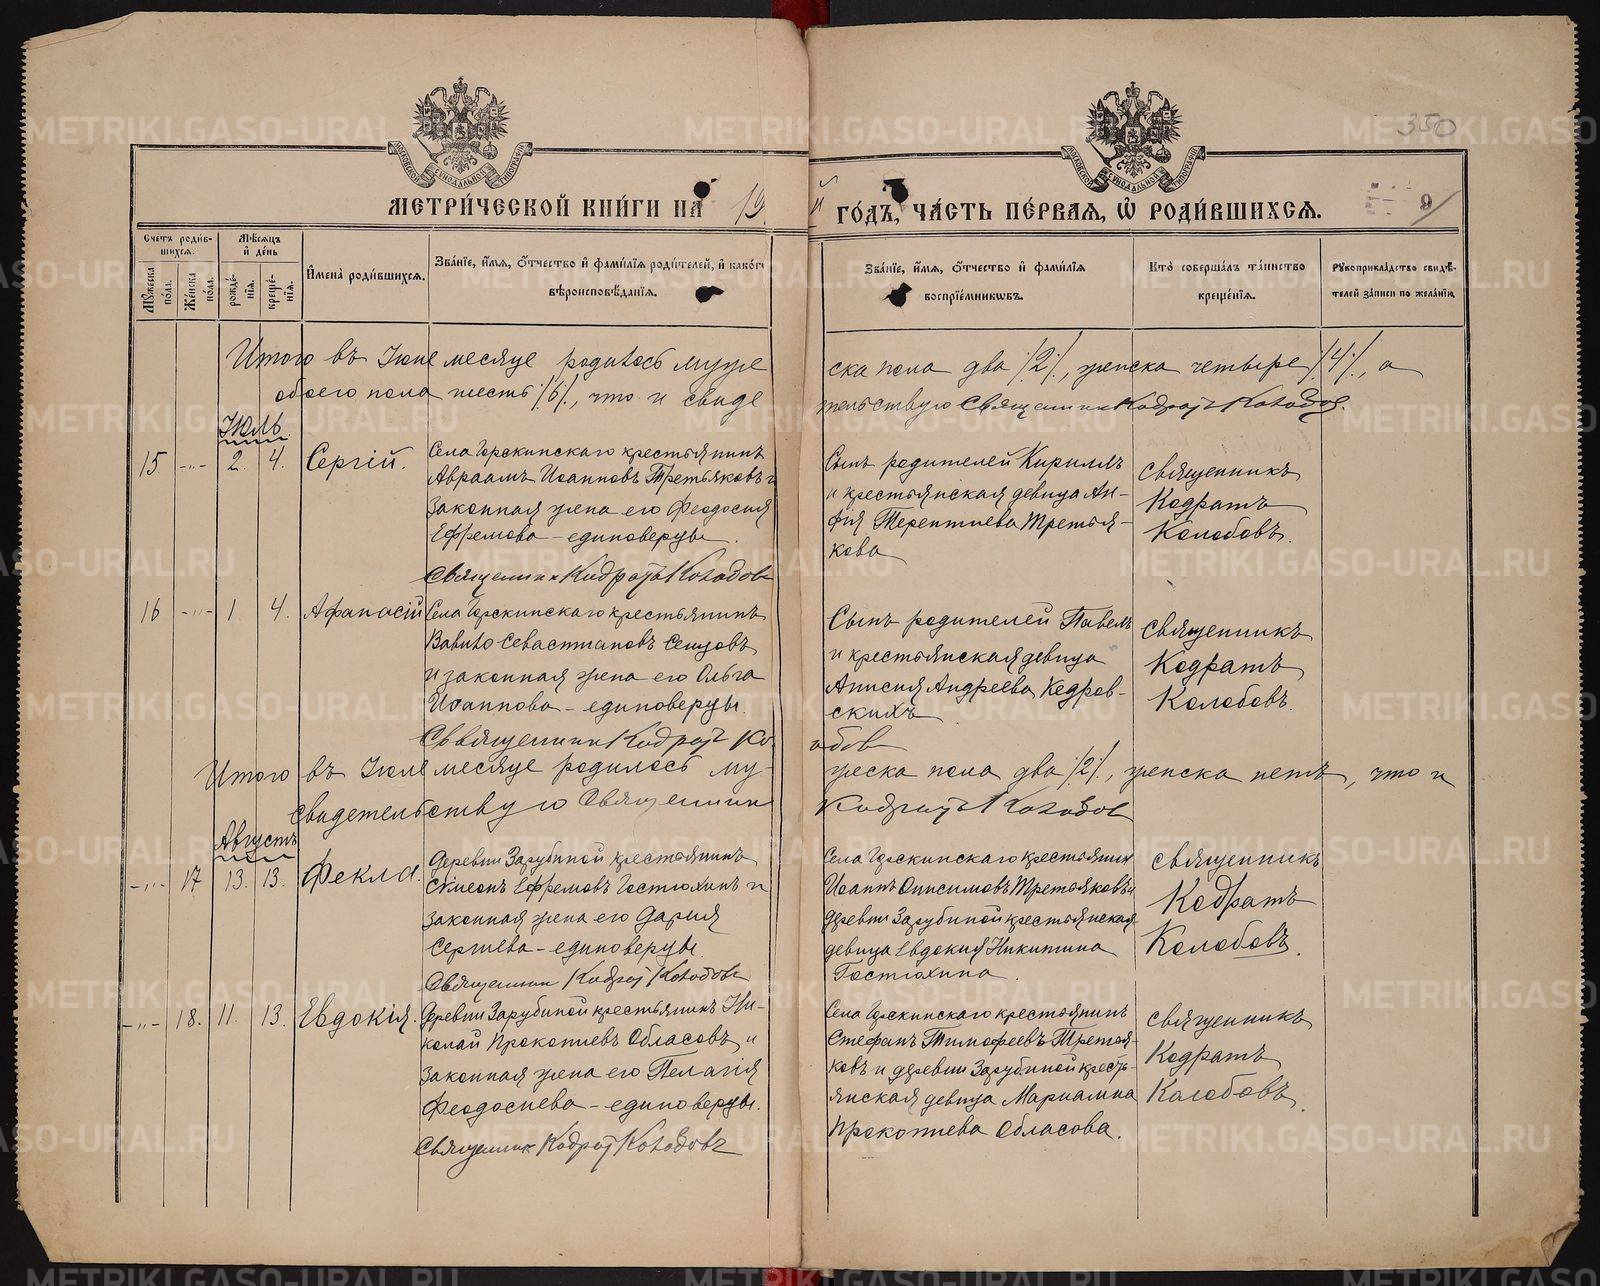 350
МОСКОВСКОЙ СѴНОДАЛЬНОЙ ТИПОГРАФІИ
МОСКОВСКОЙ СѴНОДАЛЬНОЙ ТИПОГРАФІИ
МЕТРИ́ЧЕСКОЙ КНИ́ГИ НА 19 й ГО́ДЪ, ЧА́СТЬ ПЕ́РВАЯ, Ѽ РОДИ́ВШИХСЯ. 9
Сче́тъ роди́вшихся.
Мꙋ́жеска по́ла.
Же́нска по́ла.
Мѣ́сяцъ и҆ де́нь
рожде́нїя.
креще́нїя.
И҆мена̀ роди́вшихся.
Зва́нїе, и҆́мя, ѻ҆́тчество и҆ фами́лїя роди́телей, и҆ како́гѡ вѣроисповѣ́данїя.
Зва́нїе, и҆́мя, ѻ҆́тчество и҆ фами́лїя воспрїе́мникѡвъ.
Кто̀ соверша́лъ та́инство креще́нїя.
Рꙋкоприкла́дство свидѣ́телей за́писи по жела́нїю.
Итого въ Іюне месяце родилось муже
ска пола два /2/, женска четыре /4/, а
обоего пола шесть /6/, что и свиде
тельствую Священник Кодрат Колобов.
Іюль
15 -"- 2. 4. Сергій.
Села Щ­рскинскаго крестьянинъ
Авраамъ Иоанновъ Третьяковъ и
законная жена его Феодосия
Ефремова – единоверцы.
Священник Кодратъ Колобов
Сынъ родителей Кириллъ
и крестьянская девица Ан-
фия Терентиева Третья-
кова
священникъ
Кодратъ
Колобовъ.
16 -"- 1 4. Афанасій
крестьянинъ
Вавило Севастиановъ
и законная жена его Ольга
Иоаннова – единоверцы.
Священник Кодрат Ко
лобов
Сынъ родителей Павелъ
и крестьянская девица
Анисия Андреева Кедров-
скихъ
священникъ
Кодратъ
Колобовъ.
Итого въ Іюле месяце родилось му-
жеска пола два /2/, женска нетъ, что и
свидетельствую Священник
Кодратъ Колобов
Августъ
-"- 17 13. 13. Фекла.
Деревни Зарубиной крестьянинъ
Симеонъ Ефремовъ Гостюхинъ и
законная жена его Дария
Сергиева – единоверцы.
Священник Кодрат Колобовъ
крестьянинъ
Иоаннъ Онисимовъ Третьяковъ и
деревни Зарубиной крестьянская
девица Евдокия Никитина
Гостюхина.
священникъ
Кодратъ
Колобовъ.
-"- 18. 11. 13. Евдокія.
Деревни Зарубиной крестьянинъ Ни-
колай Прокопиевъ Обласовъ, и
законная жена его Пелагія
Феодосиева – единоверцы.
Священник Кодрат Колобовъ
крестьянинъ
Стефанъ Тимофеевъ Третья-
ковъ и деревни Зарубиной кресть-
янская девица Мариамна
Прокопиева Обласова.
священникъ
Кодратъ
Колобовъ.
METRIKI.GASO-URAL.RU